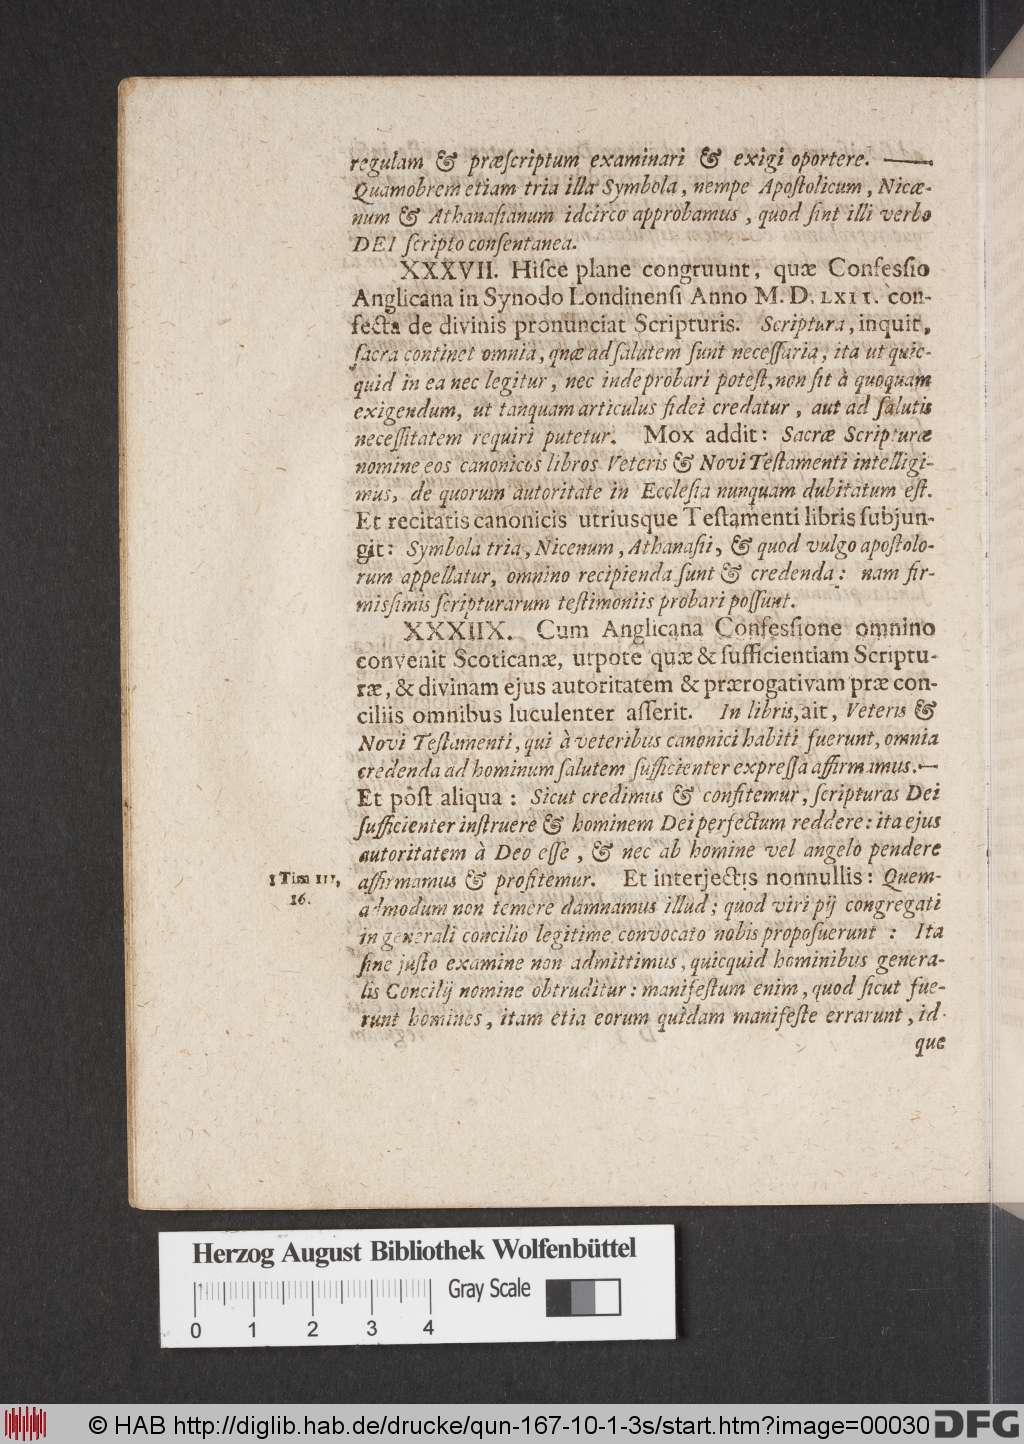 regulam & præſcriptum examinari & exigi oportere. ——
Quamobrem etiam tria illa Symbola, nempe Apoſtolicum, Nicæ-
num & Athanaſianum idcirco approbamus, quod ſint illi verbo
DEI ſcripto conſentanea.
XXXVII. Hiſce plane congruunt, quæ Confeſſio
Anglicana in Synodo Londinenſi Anno M. D. LXII. con-
fecta de divinis pronunciat Scripturis. Scriptura, inquit,
ſacra continet omnia, quæ ad ſalutem ſunt neceſſaria, ita ut quic-
quid in ea nec legitur, nec inde probari poteſt, non ſit à quoquam
exigendum, ut tanquam articulus fidei credatur, aut ad ſalutis
neceſſitatem requiri putetur. Mox addit: Sacræ Scripturæ
nomine eos canonicos libros Veteris & Novi Teſtamenti intelligi-
mus, de quorum autoritate in Eccleſia nunquam dubitatum eſt.
Et recitatis canonicis utriusque Teſtamenti libris ſubjun-
git: Symbola tria, Nicenum, Athanaſii, & quod vulgo apoſtolo-
rum appellatur, omnino recipienda ſunt & credenda: nam fir-
miſsimis ſcripturarum teſtimoniis probari poſſunt.
XXXIIX. Cum Anglicana Confeſsione omnino
convenit Scoticanæ, utpote quæ & ſufficientiam Scriptu-
ræ, & divinam ejus autoritatem & prærogativam præ con-
ciliis omnibus luculenter aſſerit. In libris, ait, Veteris &
Novi Teſtamenti, qui à veteribus canonici habiti fuerunt, omnia
credenda ad hominum ſalutem ſufficienter expreſſa affirmamus.—
Et pòſt aliqua: Sicut credimus & confitemur, ſcripturas Dei
ſufficienter inſtruere & hominem Dei perfectum reddere: ita ejus
autoritatem à Deo eſſe, & nec ab homine vel angelo pendere
1 Tim III, affirmamus & profitemur. Et interjectis nonnullis: Quem-
16. admodum non temere damnamus illud; quod viri pij congregati
in generali concilio legitime convocato nobis propoſuerunt: Ita
ſine juſto examine non admittimus, quicquid hominibus genera-
lis Concilij nomine obtruditur: manifeſtum enim, quod ſicut fue-
runt homines, itam etia eorum quidam manifeſte errarunt, id-
que
Herzog August Bibliothek Wolfenbüttel
Gray Scale
0 1 2 3 4
© HAB http://diglib.hab.de/drucke/qun-167-10-1-3s/start.htm?image=00030 DFG